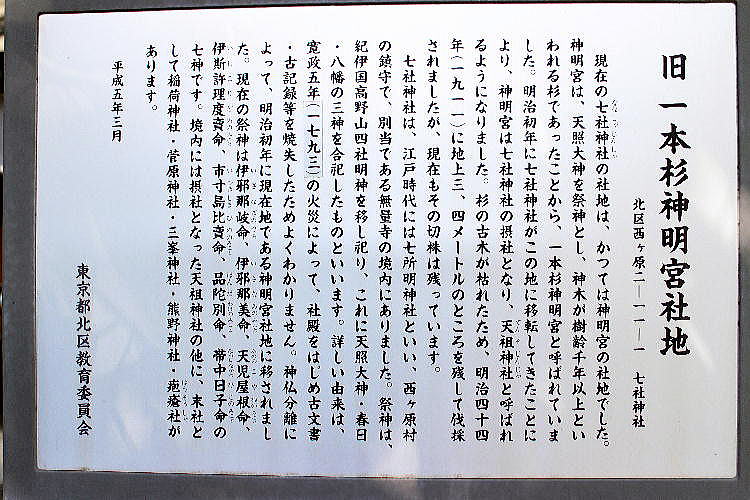 旧一本杉神明宮社地
北区西ヶ原二―一一―一　七社神社
現在の七社神社の社地は、かつては神明宮の社地でした。
神明宮は、天照大神を祭神とし、神木が樹齢千年以上とい
われる杉であったことから、一本杉神明宮と呼ばれていま
した。明治初年に七社神社がこの地に移転してきたことに
より、神明宮は七社神社の摂社となり、天祖神社と呼ばれ
るようになりました。杉の古木が枯れたため、明治四十四
年（一九一一）に地上三、四メートルのところを残して伐採
されましたが、現在もその切株は残っています。
七社神社は、江戸時代には七所明神社といい、西ヶ原村
の鎮守で、別当である無量寺の境内にありました。祭神は、
紀伊国高野山四社明神を移し祀り、これに天照大神・春日
・八幡の三神を合祀したものといいます。詳しい由来は、
寛政五年（一七九三）の火災によって、社殿をはじめ古文書
・古記録等を焼失したためよくわかりません。神仏分離に
よって、明治初年に現在地である神明宮社地に移されまし
た。現在の祭神は伊邪那岐命、伊邪那美命、天児屋根命、
伊斯許理度賣命、市寸島比賣命、品陀別命、帯中日子命の
七神です。境内には摂社となった天祖神社の他に、末社と
して稲荷神社・菅原神社・三峯神社・熊野神社・疱瘡社が
あります。
平成五年三月
東京都北区教育委員会